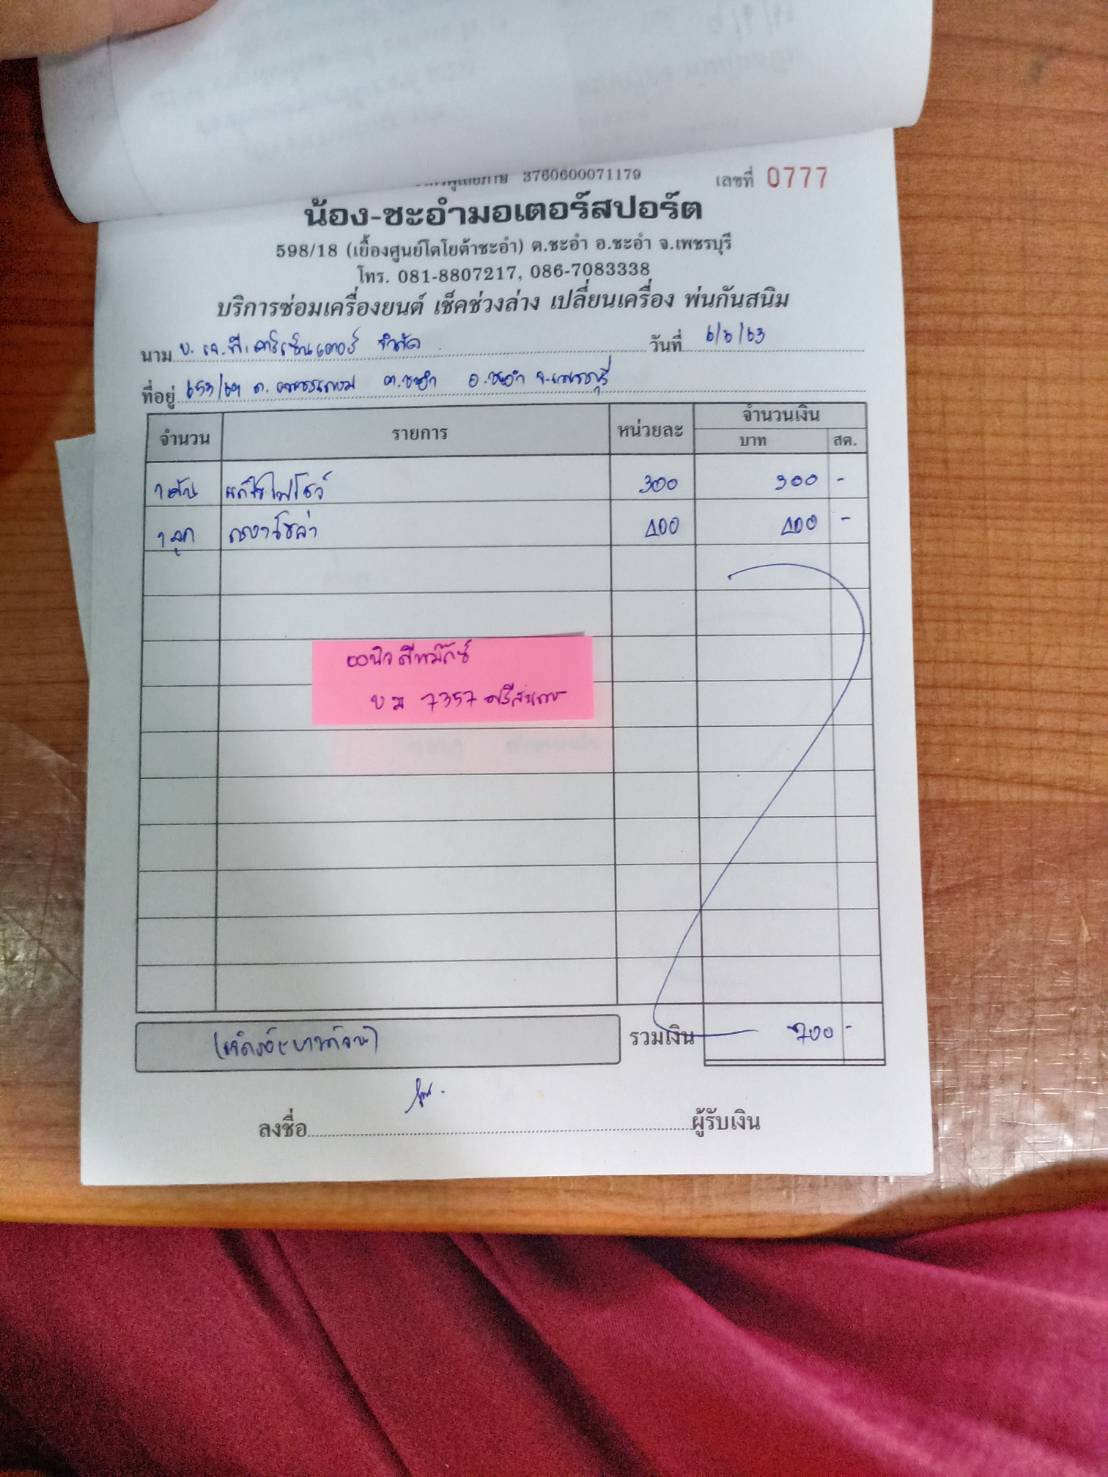 3760600071179
เลขที่ 0777
น้อง-ชะอำมอเตอร์สปอร์ต
598/18 (เยื้องศูนย์โตโยต้าชะอำ) ต.ชะอำ อ.ชะอำ จ.เพชรบุรี
โทร. 081-8807217, 086-7083338
บริการซ่อมเครื่องยนต์ เช็คช่วงล่าง เปลี่ยนเครื่อง พ่นกันสนิม
นาม บ. เจ.พี. จำกัด วันที่ 6/6/63
ที่อยู่ 653/69 ถ. เพชรเกษม ต.ชะอำ อ.ชะอำ จ.เพชรบุรี
จำนวน รายการ หน่วยละ จำนวนเงิน
บาท สต.
1 คัน แก้ไขไฟโชว์ 300 300 -
1 ลูก 400 400 -
บม 7357
(เจ็ดร้อยบาทถ้วน) รวมเงิน 700 -
ลงชื่อ ผู้รับเงิน